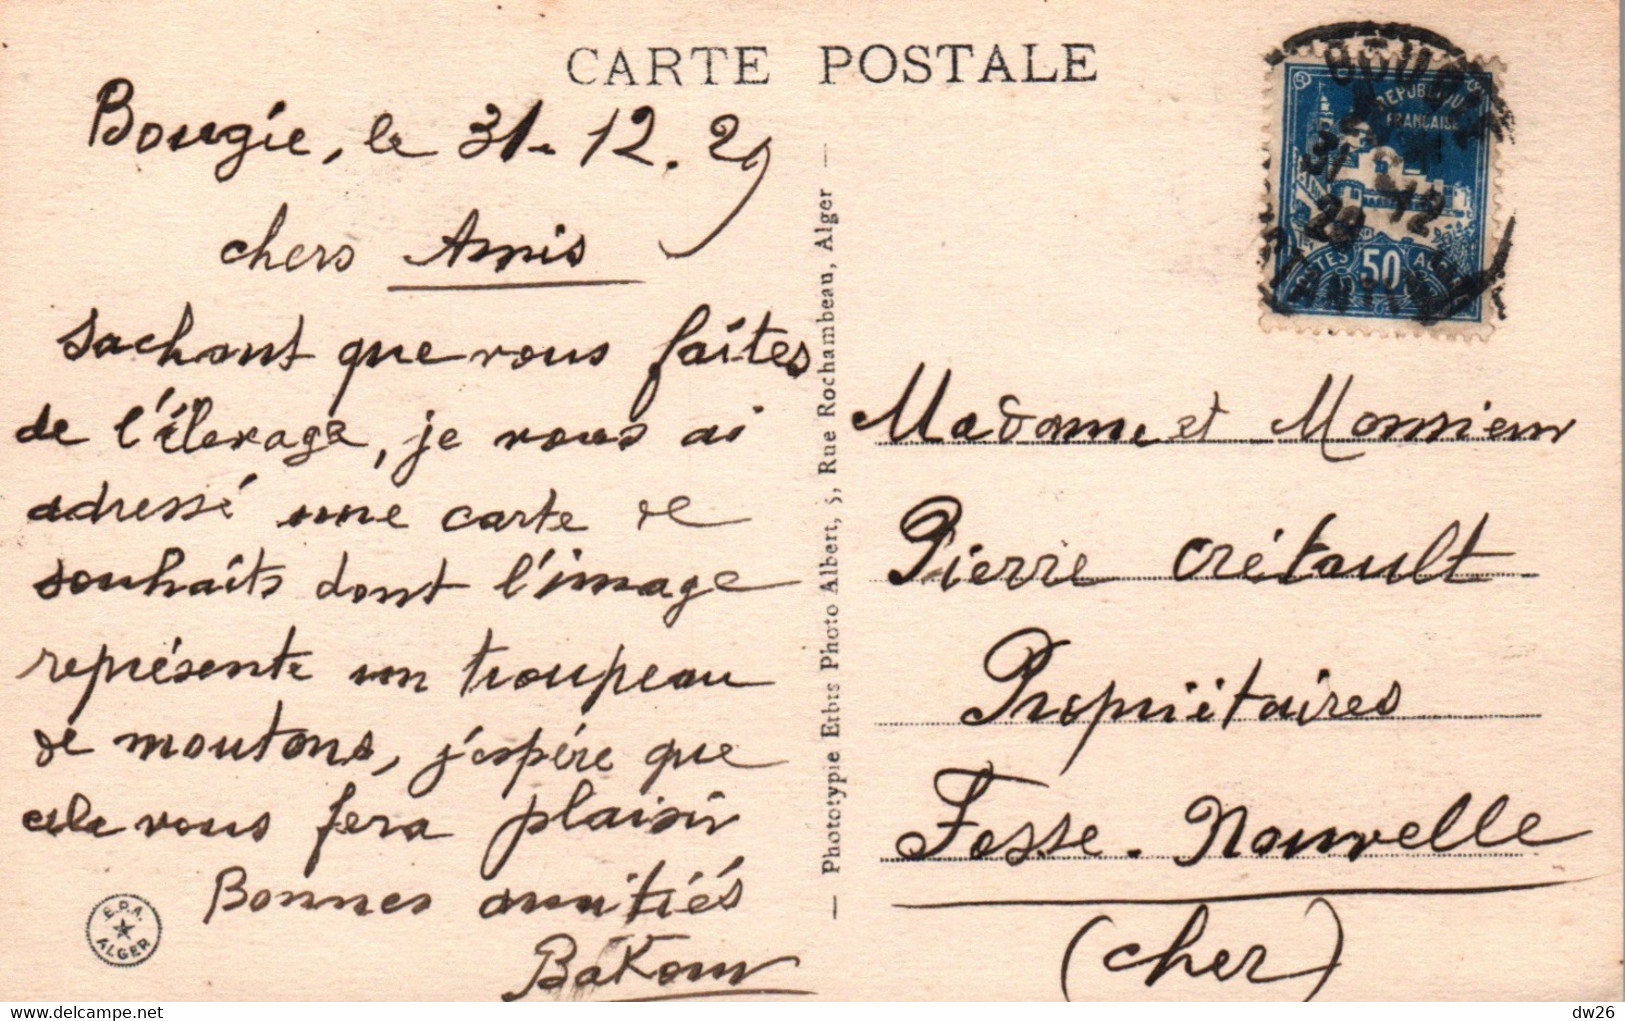 CARTE POSTALE
Bougie, le 31-12.29
chers Amis
Sachant que vous faites
de l'élevage, je vous ai
adressé une carte de
souhaits dont l'image
représente un troupeau
de moutons, j'espère que
cela vous fera plaisir
Bonnes amitiés
E.P.A.
ALGER
— Phototypie Etbts Photo Albert, 5, Rue Rochambeau, Alger —
REPUBLIQUE
FRANÇAISE
50
31 12
29
Madame et Monsieur
Pierre Crétault
Propriétaires
Fosse-Nouvelle
(Cher)
delcampe.net
dw26